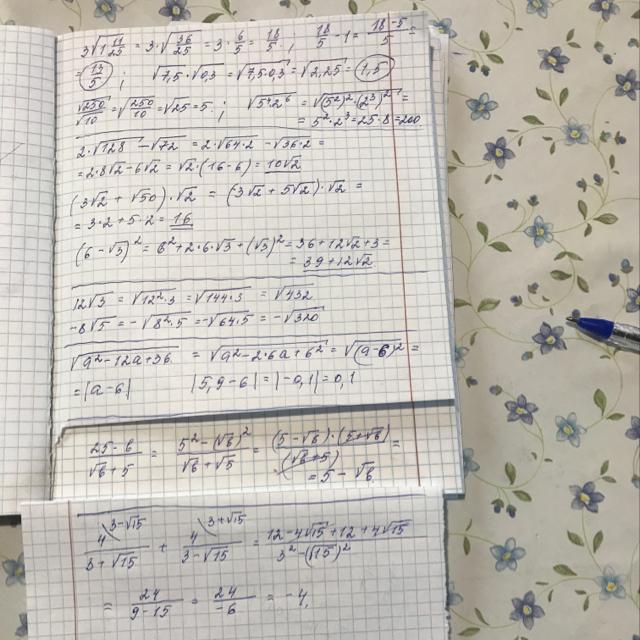 3√1 11/25 = 3·√36/25 = 3·6/5 = 18/5 ; 18/5 - 1 = 18-5/5 =
= 13/5 ; √7,5 · √0,3 = √7,5·0,3 = √2,25 = 1,5
√250/√10 = √250/10 = √25 = 5 ; √5⁴·2⁶ = √(5²)²·(2³)² =
= 5²·2³ = 25·8 = 200
2·√128 - √72 = 2·√64·2 - √36·2 =
= 2·8√2 - 6√2 = √2·(16-6) = 10√2
(3√2 + √50)·√2 = (3√2 + 5√2)·√2 =
= 3·2 + 5·2 = 16
(6-√3)² = 6² + 2·6·√3 + (√3)² = 36 + 12√2 + 3 =
= 39 + 12√2
12√3 = √12²·3 = √144·3 = √432
-8√5 = -√8²·5 = -√64·5 = -√320
√a² - 12a + 36 = √a² - 2·6a + 6² = √(a-6)² =
= |a-6| |5,9-6| = |-0,1| = 0,1
25-6/√6+5 = 5²-(√6)²/√6+√5 = (5-√6)·(5+√6)/(√6+5) =
= 5-√6
4^3-√15/3+√15 + 4^3+√15/3-√15 = 12-4√15+12+4√15/3²-(√15)²
= 24/9-15 = 24/-6 = -4.